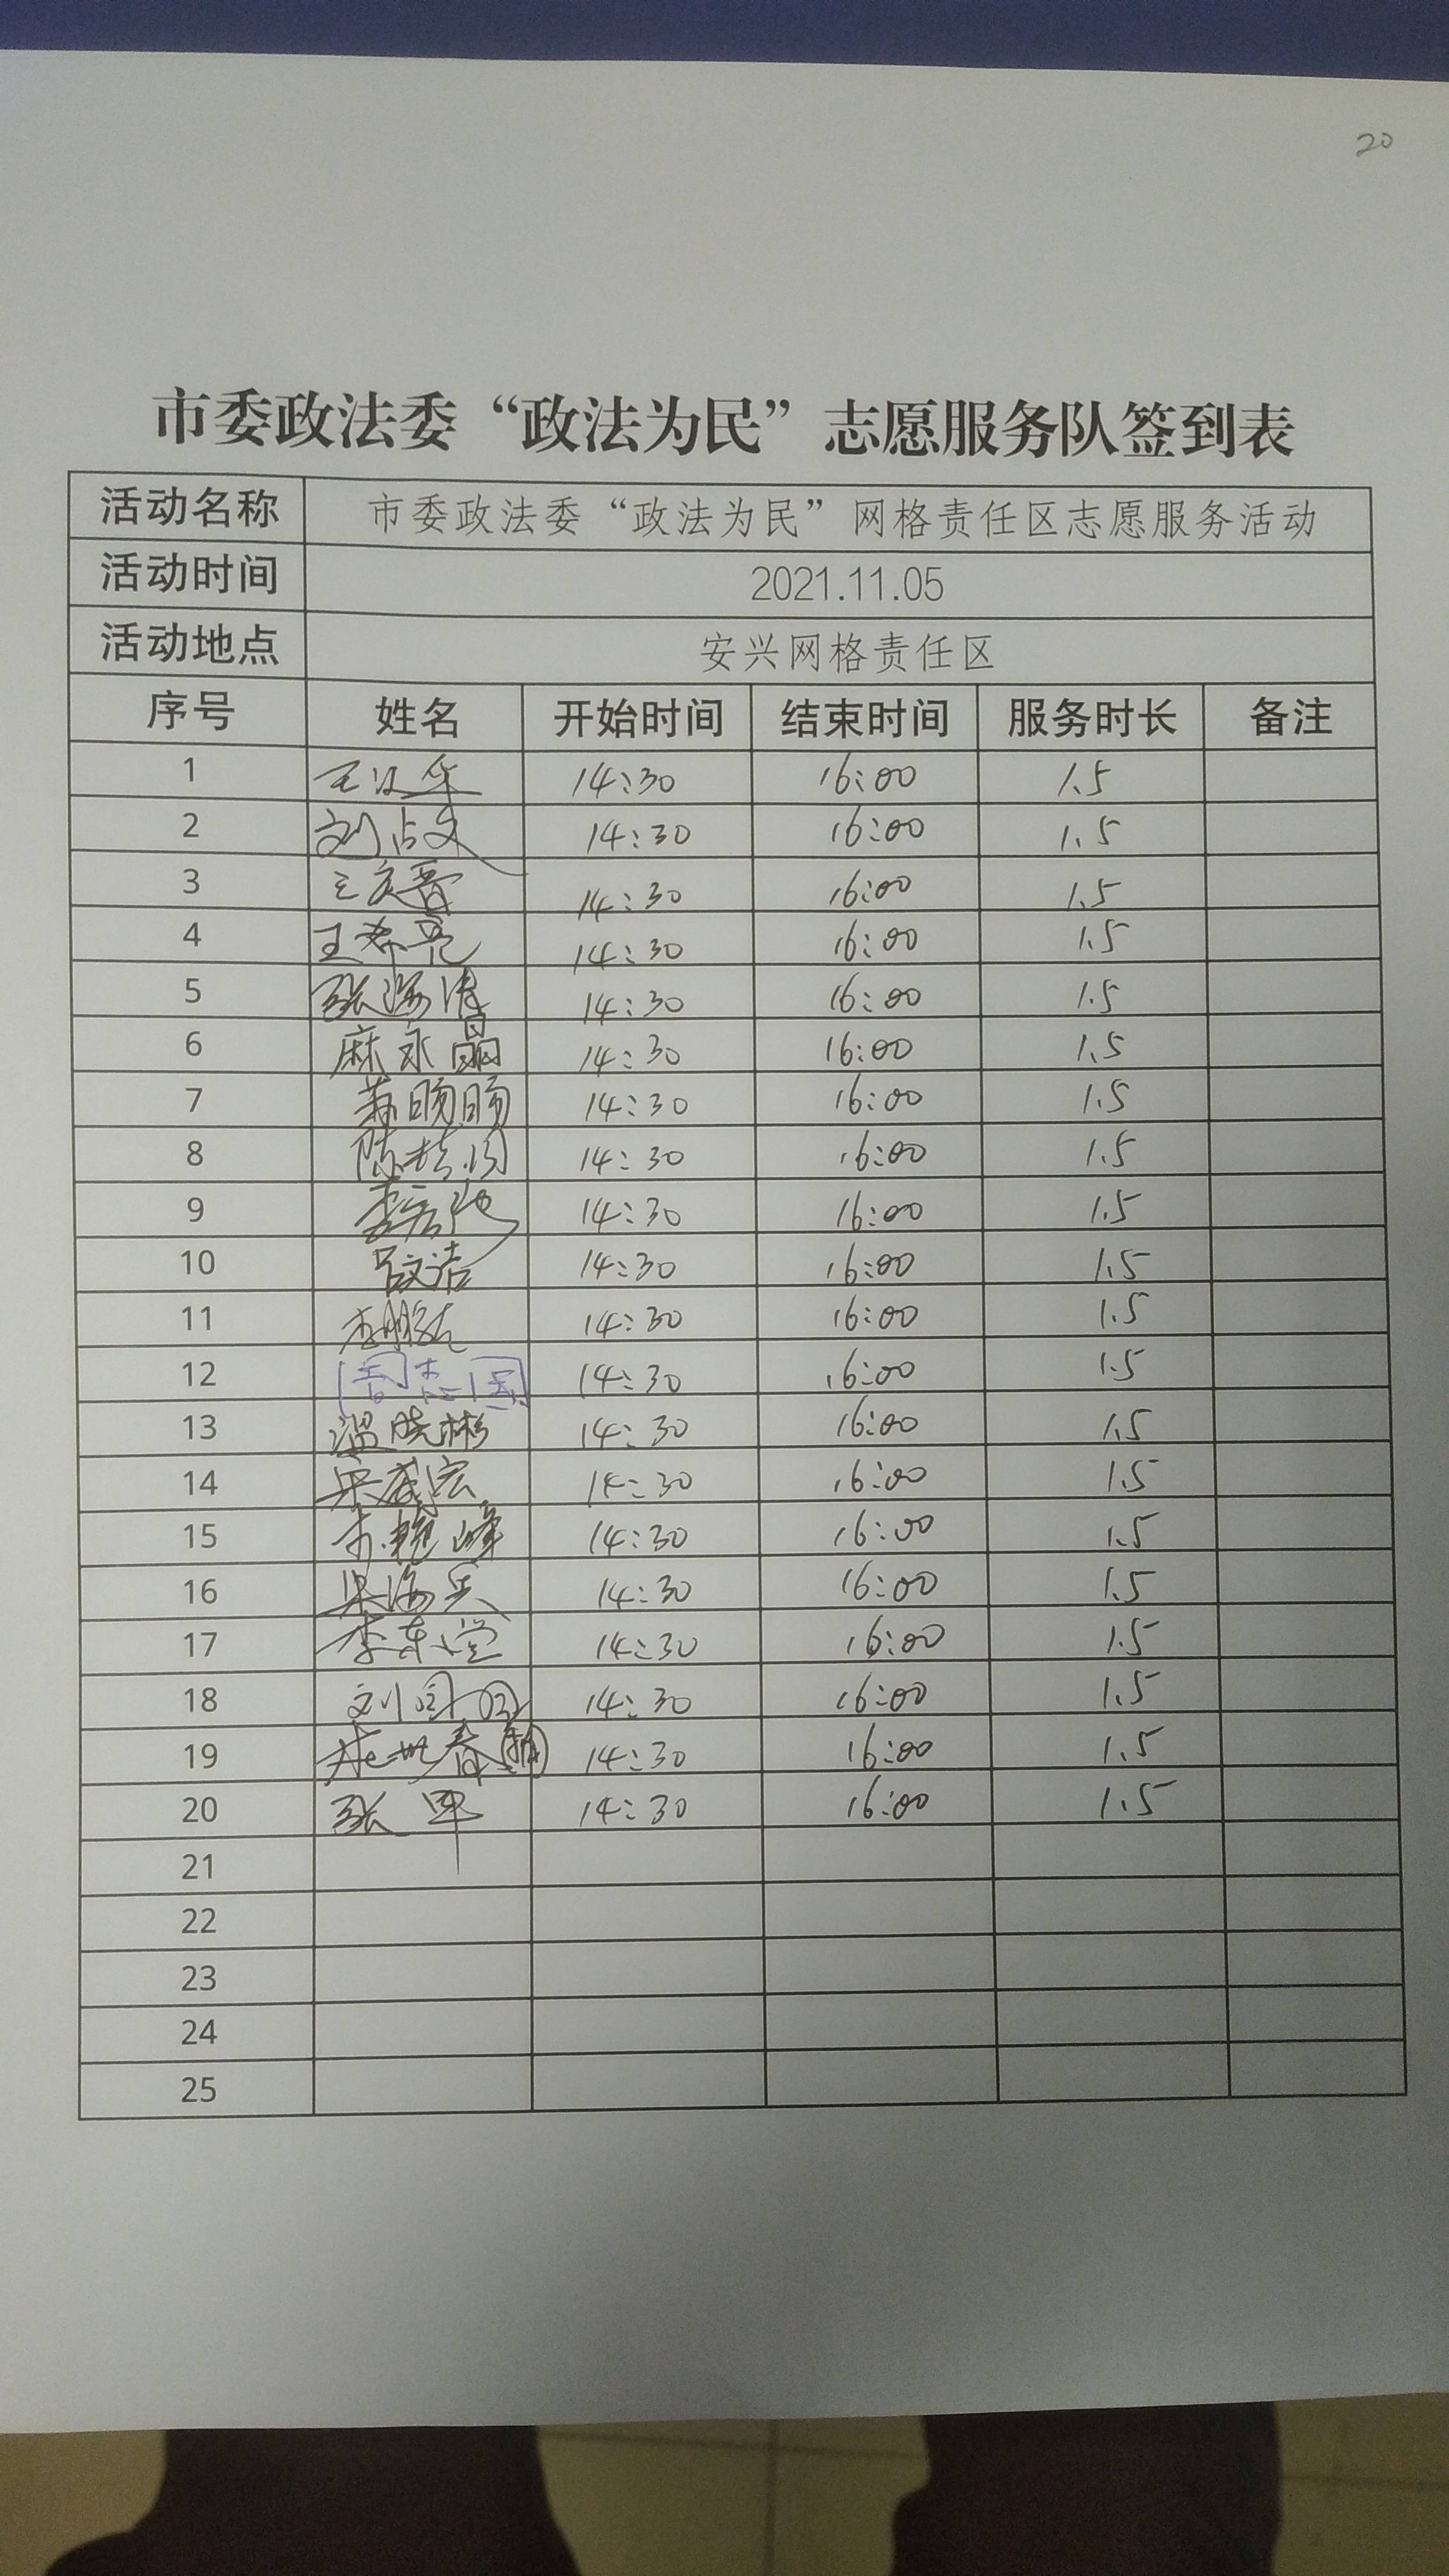 20
市委政法委“政法为民”志愿服务队签到表
活动名称 市委政法委“政法为民”网格责任区志愿服务活动
活动时间 2021.11.05
活动地点 安兴网格责任区
序号 姓名 开始时间 结束时间 服务时长 备注
1 14:30 16:00 1.5
2 刘占文 14:30 16:00 1.5
3 14:30 16:00 1.5
4 王希亮 14:30 16:00 1.5
5 张海涛 14:30 16:00 1.5
6 麻永晶 14:30 16:00 1.5
7 14:30 16:00 1.5
8 14:30 16:00 1.5
9 14:30 16:00 1.5
10 吕文洁 14:30 16:00 1.5
11 14:30 16:00 1.5
12 周志国 14:30 16:00 1.5
13 温晓彬 14:30 16:00 1.5
14 14:30 16:00 1.5
15 14:30 16:00 1.5
16 14:30 16:00 1.5
17 李东堂 14:30 16:00 1.5
18 14:30 16:00 1.5
19 14:30 16:00 1.5
20 张军 14:30 16:00 1.5
21
22
23
24
25